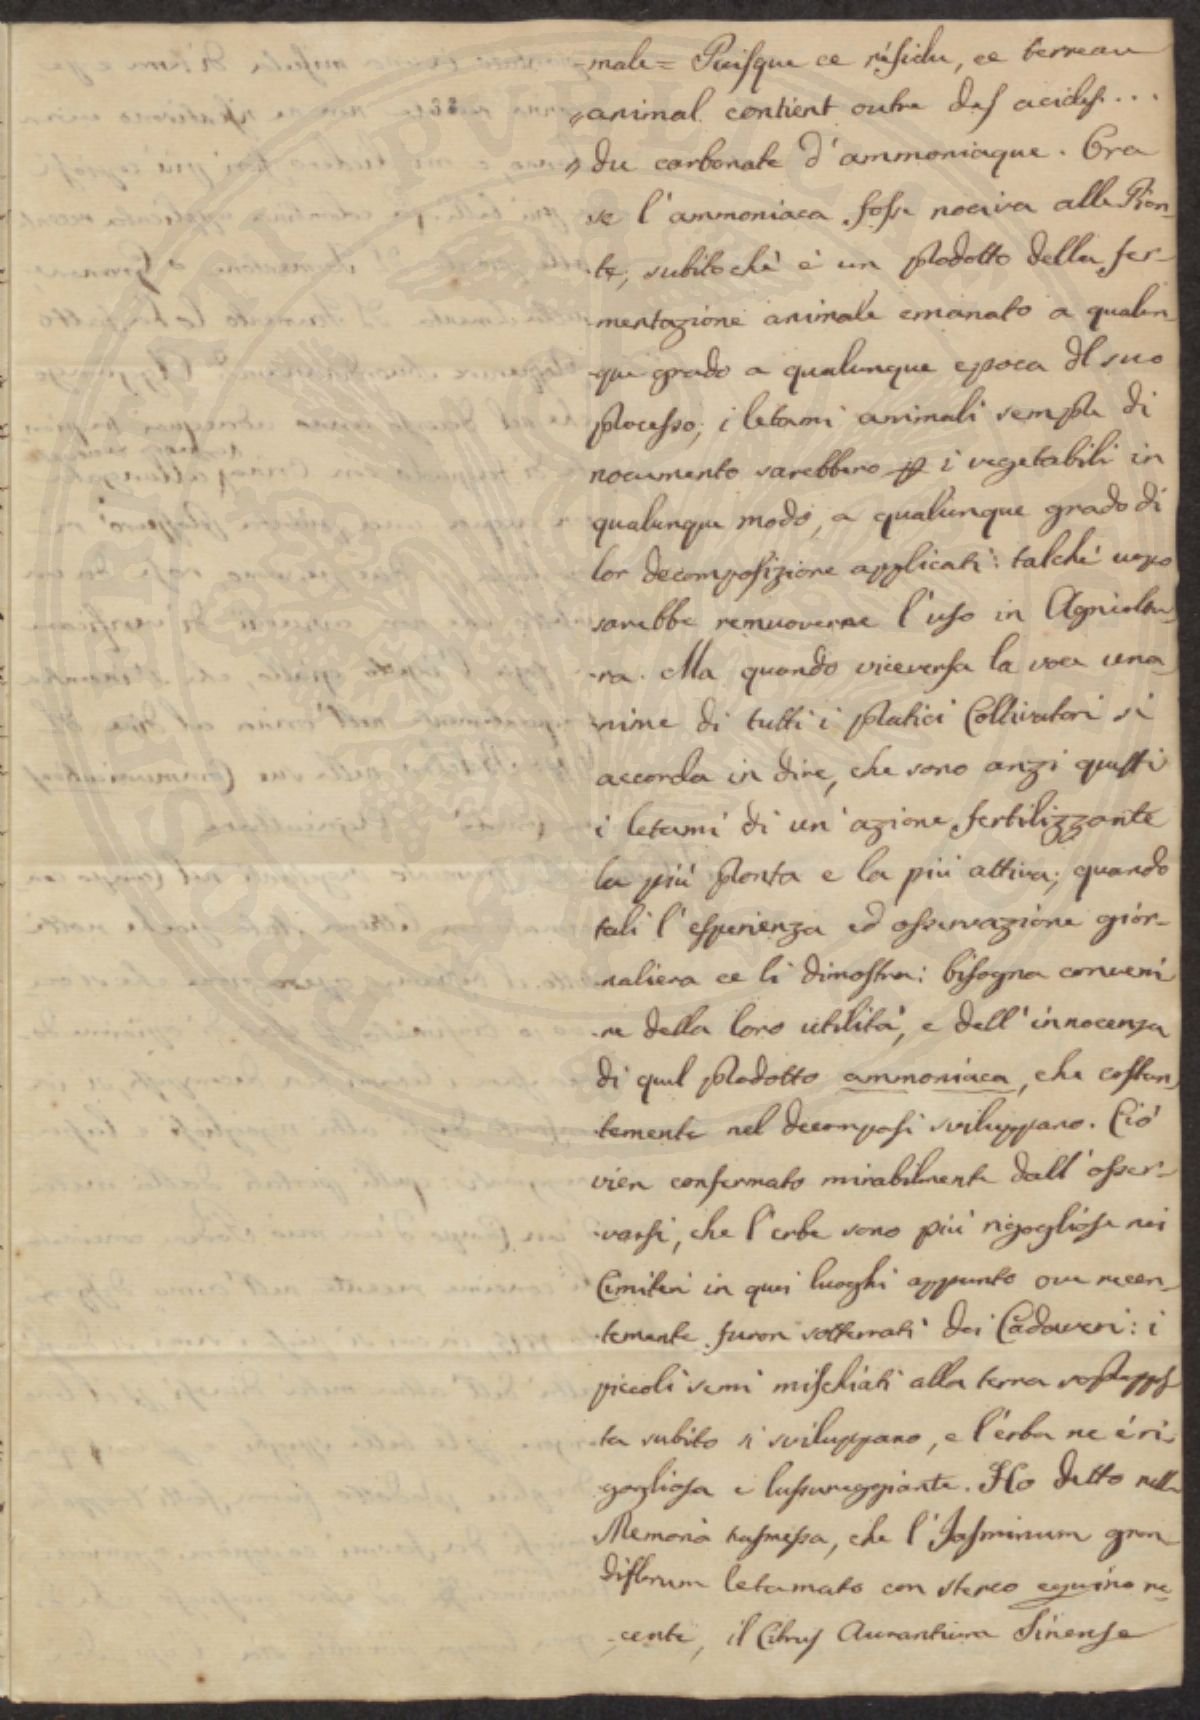 male = Puisque ce résidu, ce terreau
„ animal contient outre des acides...
„ du carbonate d'ammoniaque. Ora
se l'ammoniaca fosse nociva alle Pian-
te, subitochè è un prodotto della fer-
mentazione animale emanato a qualun-
que grado a qualunque epoca del suo
processo, i letami animali sempre di
nocumento sarebbero p i vegetabili in
qualunque modo, a qualunque grado di
lor decomposizione applicati: talchè uopo
sarebbe remuoverne l'uso in Agricoltu-
ra. Ma quando viceversa la voce una-
nime di tutti i pratici Coltivatori si
accorda in dire, che sono anzi questi
i letami di un'azione fertilizzante
la più pronta e la più attiva; quando
tali l'esperienza ed osservazione gior-
naliera ce li dimostra: bisogna conveni
re della loro utilità, e dell'innocenza
di quel prodotto ammoniaca, che costan
temente nel decomporsi sviluppano. Ciò
vien confermato mirabilmente dall'osser-
varsi, che l'erbe sono più rigogliose nei
Cimiteri in quei luoghi appunto ove recen-
temente furon sotterrati dei Cadaveri: i
piccoli semi mischiati alla terra
ta subito si sviluppano, e l'erba ne è ri-
gogliosa e lussureggiante. Ho detto nella
Memoria trasmessa, che l'Jasminum gran
diflorum letamato con sterco equino re-
cente, il Citrus Aurantium Sinense